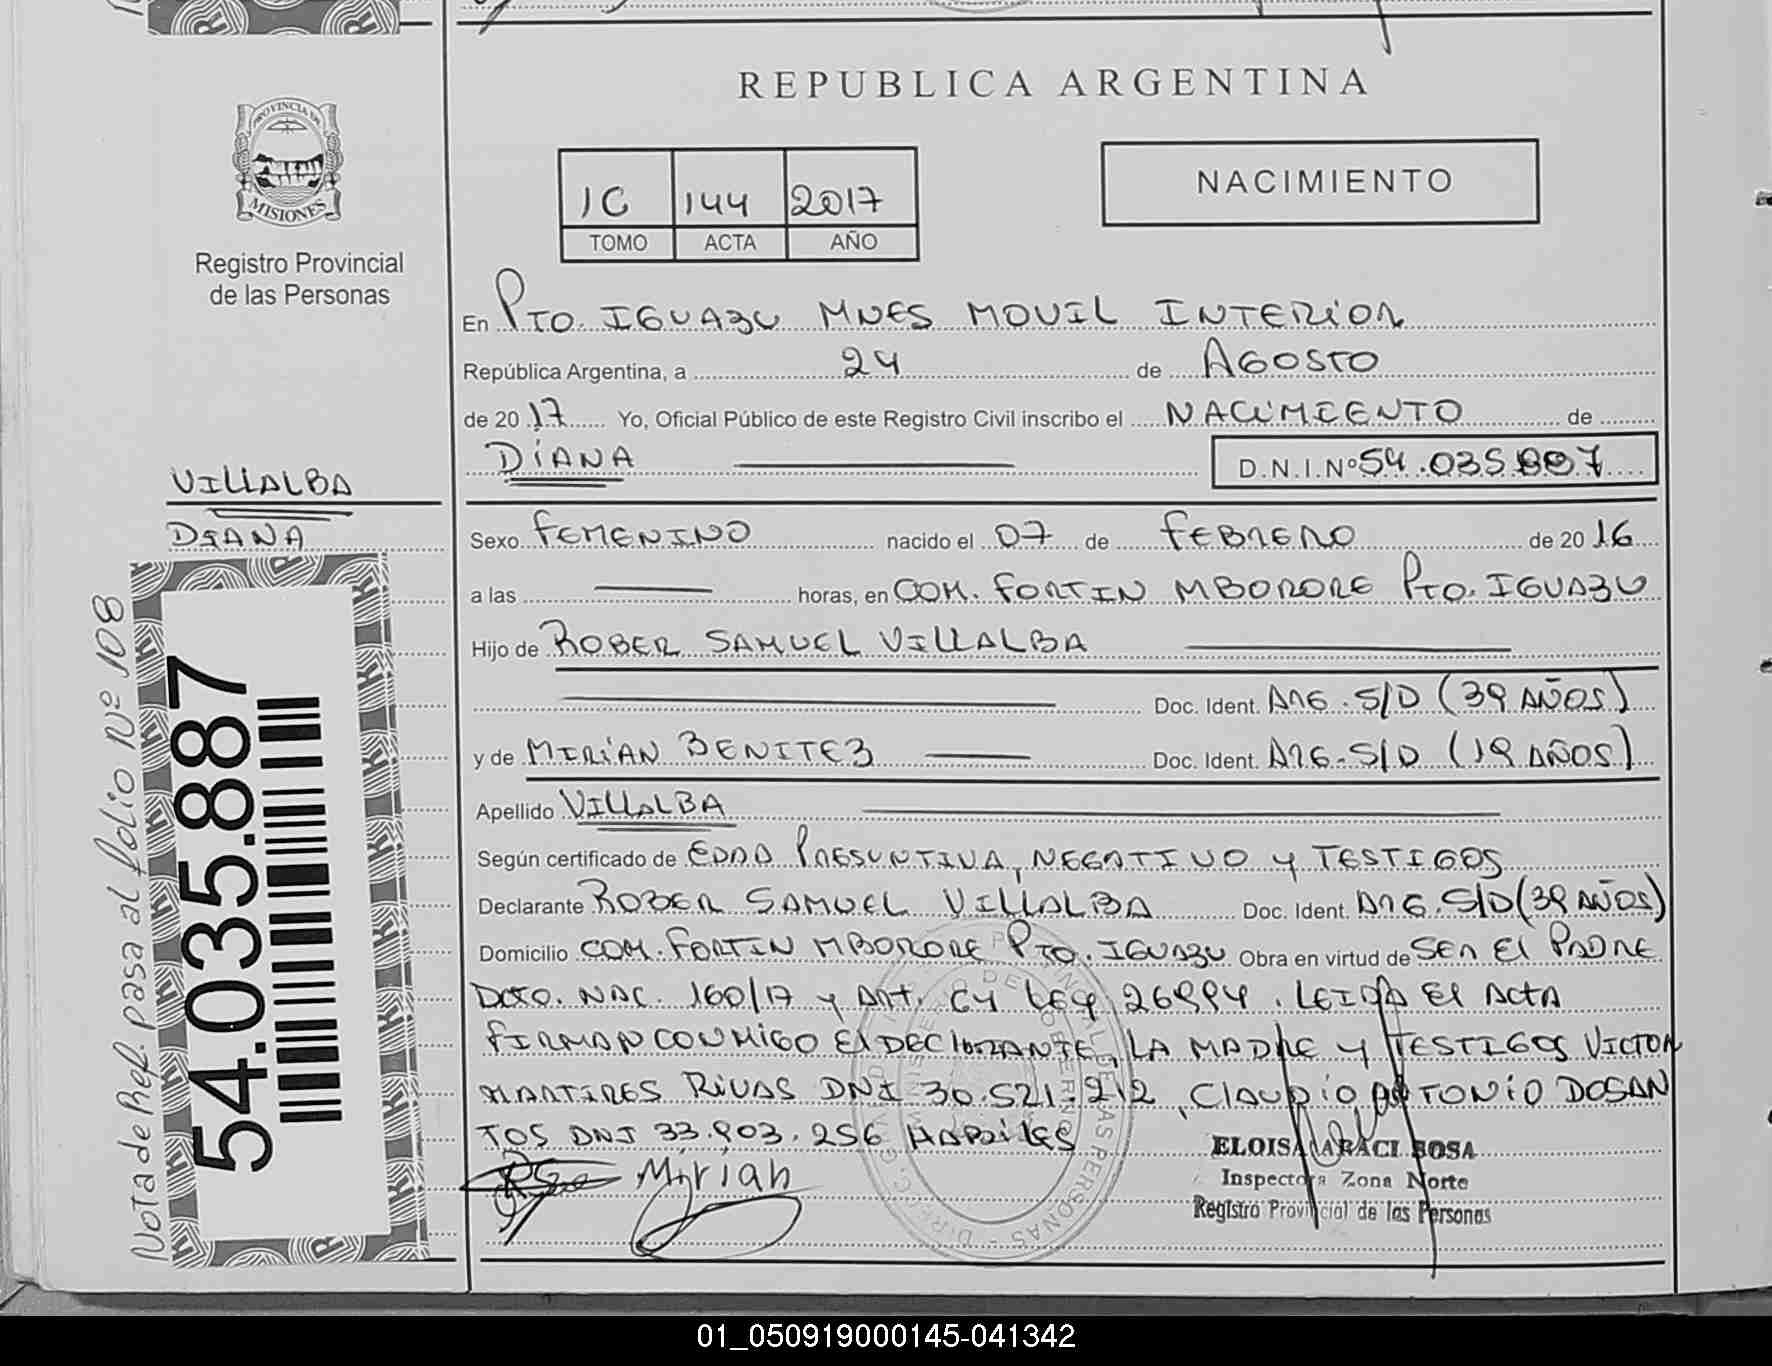 REPUBLICA ARGENTINA
PROVINCIA DE
MISIONES
Registro Provincial
de las Personas
1C 144 2017
TOMO ACTA AÑO
NACIMIENTO
En PTO. IGUAZU MNES MOVIL INTERIOR
República Argentina, a 24 de AGOSTO
de 2017 Yo, Oficial Público de este Registro Civil inscribo el NACIMIENTO de
DIANA D.N.I.Nº 54.035.887
VILLALBA
DIANA
Sexo FEMENINO nacido el 07 de FEBRERO de 2016
a las horas, en COM. FORTIN MBORORE PTO. IGUAZU
Hijo de ROBER SAMUEL VILLALBA
Doc. Ident. ARG. S/D (39 AÑOS)
y de MIRIAN BENITEZ Doc. Ident. ARG. S/D (19 AÑOS)
Apellido VILLALBA
Según certificado de EDAD PRESUNTIVA, NEGATIVO y TESTIGOS
Declarante ROBER SAMUEL VILLALBA Doc. Ident. ARG. S/D (39 AÑOS)
Domicilio COM. FORTIN MBORORE PTO. IGUAZU Obra en virtud de SER El PADRE
DCTO. NAC. 160/17 y ART. CY LEY 26994. LEIDA El ACTA
FIRMAN CONMIGO El DECLARANTE, LA MADRE y TESTIGOS VICTOR
MARTIRES RIVAS DNI 30.521.212, CLAUDIO ANTONIO DOSAN
TOS DNI 33.903.256 HABILES
Mirian
ELOISA ARACI BOSA
Inspectora Zona Norte
Registro Provincial de las Personas
54.035.887
Nota de Ref. pasa al folio Nº 108
01_050919000145-041342